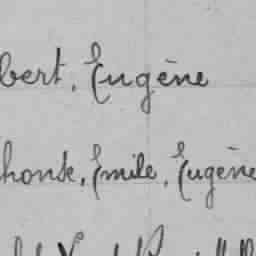 bert, Eugène
honse, Emile, Eugène